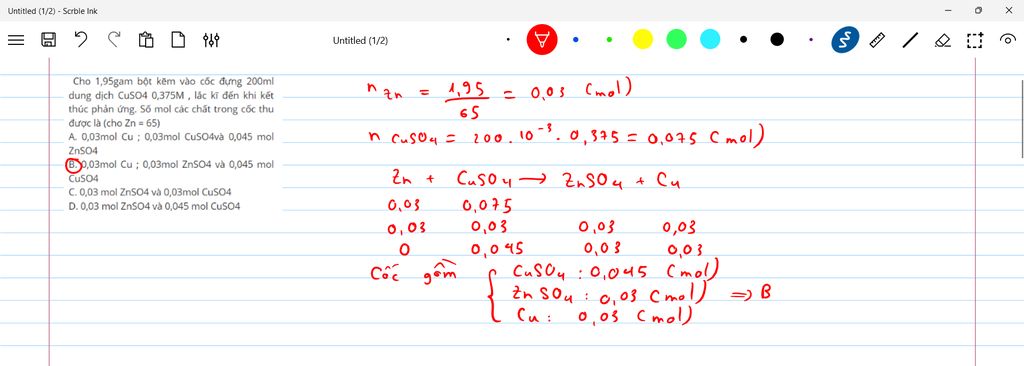 Untitled (1/2) - Scrble Ink
Untitled (1/2)
Cho 1,95gam bột kẽm vào cốc đựng 200ml
dung dịch CuSO4 0,375M , lắc kĩ đến khi kết
thúc phản ứng. Số mol các chất trong cốc thu
được là (cho Zn = 65)
A. 0,03mol Cu ; 0,03mol CuSO4và 0,045 mol
ZnSO4
B. 0,03mol Cu ; 0,03mol ZnSO4 và 0,045 mol
CuSO4
C. 0,03 mol ZnSO4 và 0,03mol CuSO4
D. 0,03 mol ZnSO4 và 0,045 mol CuSO4
n Zn = 1,95 / 65 = 0,03 (mol)
n CuSO4 = 200 . 10⁻³ . 0,375 = 0,075 (mol)
Zn + CuSO4 → ZnSO4 + Cu
0,03 0,075
0,03 0,03 0,03 0,03
0 0,045 0,03 0,03
Cốc gồm { CuSO4 : 0,045 (mol)
ZnSO4 : 0,03 (mol) ⇒ B
Cu : 0,03 (mol)